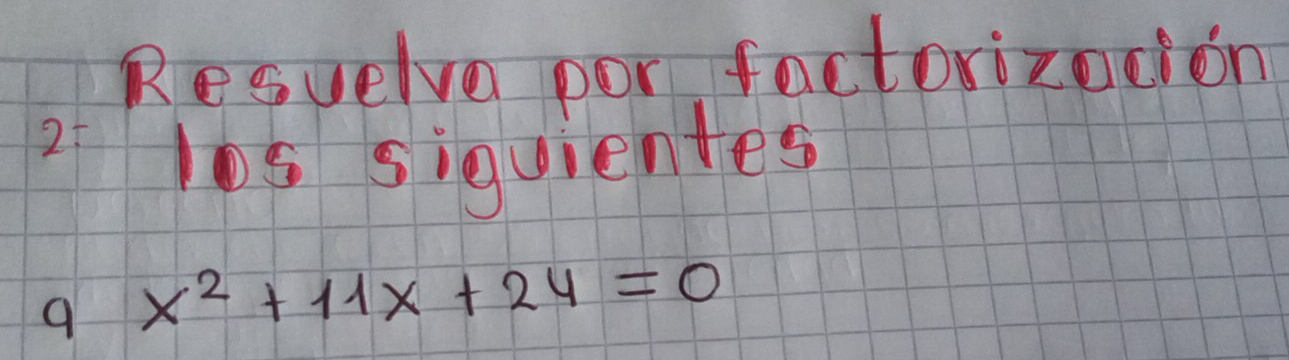 Resuelva por factorización
2= los siguientes
a x² + 11x + 24 = 0